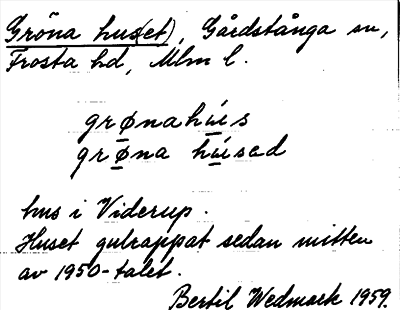 Gröna hus(et), Gårdstånga sn,
Frosta hd, Mlm l.
grø̱nahú̱s
grø̱na hú̱sad
hus i Viderup.
Huset gulrappat sedan mitten
av 1950-talet.
Bertil Wedmark 1959.